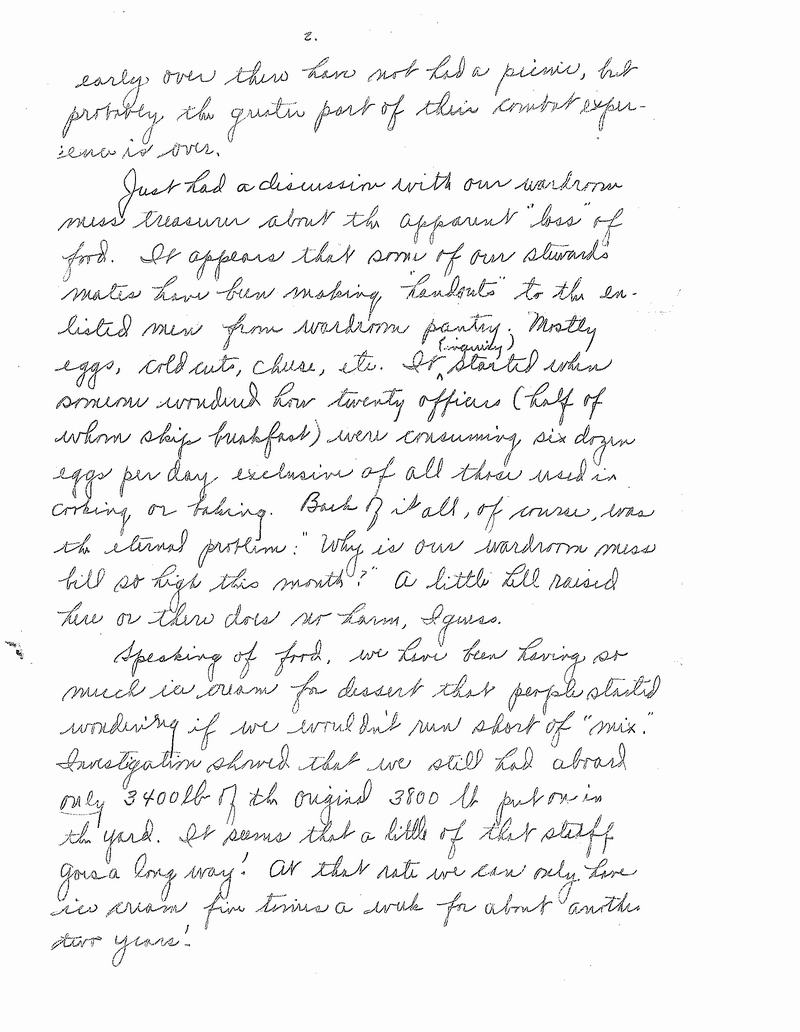 2.
early over there have not had a picnic, but
probably the greater part of their combat exper-
ience is over.
Just had a discussion with our wardroom
mess treasurer about the apparent "loss" of
food. It appears that some of our steward's
mates have been making "handouts" to the en-
listed men from wardroom pantry. Mostly
(inquiry)
eggs, cold cuts, cheese, etc. It ^ started when
someone wondered how twenty officers (half of
whom skip breakfast) were consuming six dozen
eggs per day exclusive of all those used in
cooking or baking. Back of it all, of course, was
the eternal problem: "Why is our wardroom mess
bill so high this month?" A little hell raised
here or there does no harm, I guess.
Speaking of food, we have been having so
much ice cream for dessert that people started
wondering if we wouldn't run short of "mix."
Investigation showed that we still had aboard
only 3400 lb of the original 3800 lb put on in
the yard. It seems that a little of that stuff
goes a long way! At that rate we can only have
ice cream five times a week for about another
two years!